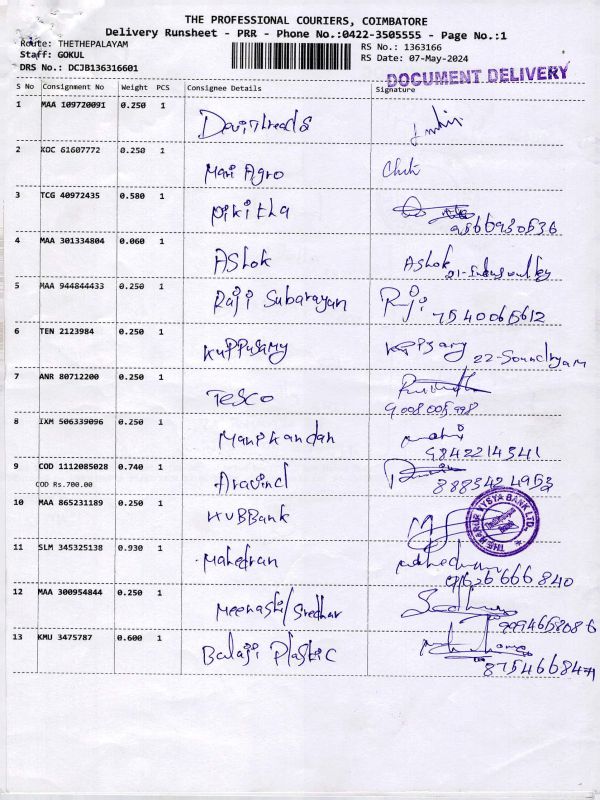 THE PROFESSIONAL COURIERS, COIMBATORE
Delivery Runsheet - PRR - Phone No.:0422-3505555 - Page No.:1
Route: THETHEPALAYAM
RS No.: 1363166
Staff: GOKUL
RS Date: 07-May-2024
DRS No.: DCJB136316601
DOCUMENT DELIVERY
S No Consignment No Weight PCS Consignee Details Signature
1 MAA 109720091 0.250 1
2 KOC 61607772 0.250 1
Mani Agro
3 TCG 40972435 0.580 1
Nikitha
9566930536
4 MAA 301334804 0.060 1
Ashok Ashok
5 MAA 944844433 0.250 1
Raji Subarayan Raji
7540065612
6 TEN 2123984 0.250 1
Kuppusamy
7 ANR 80712200 0.250 1
Tesco
8 IXM 506339096 0.250 1
Manikandan
9842214541
9 COD 1112085028 0.740 1
COD Rs.700.00
Aravind
8883424953
10 MAA 865231189 0.250 1
KVBBank
THE KARUR VYSYA BANK LTD.
11 SLM 345325138 0.930 1
12 MAA 300954844 0.250 1
13 KMU 3475787 0.600 1
Balaji Plastic